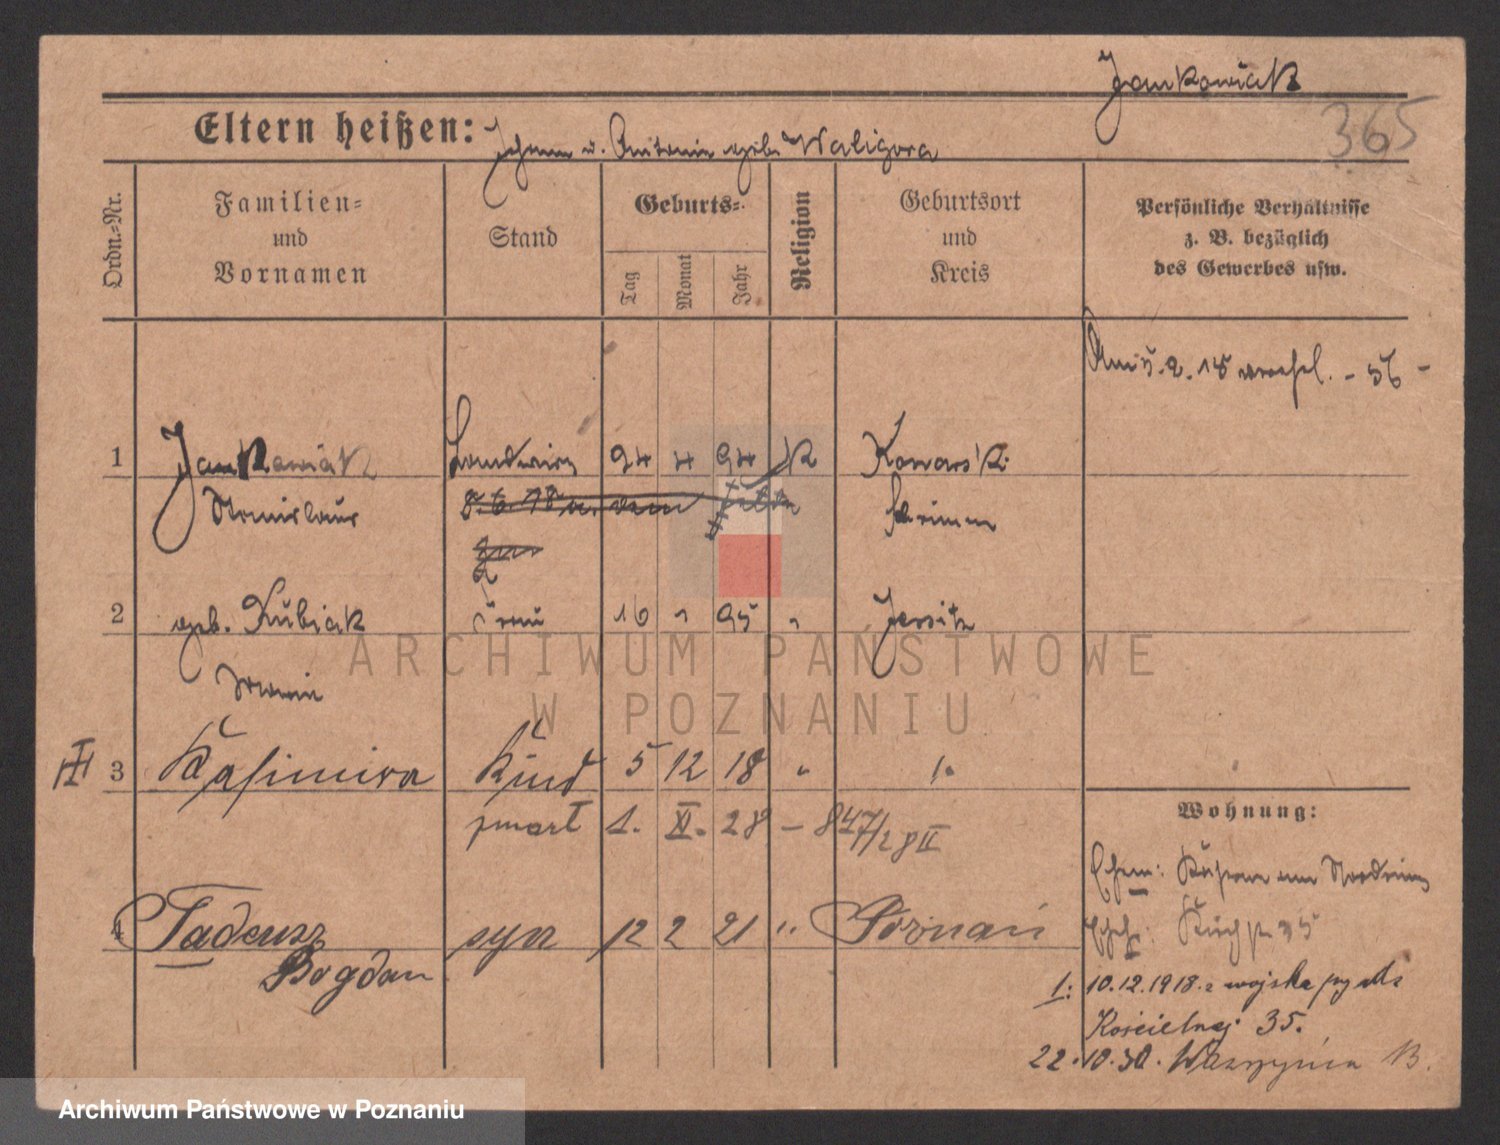 Jankowiak
365
Eltern heißen: Johann u. Antonie geb. Waligora
Ordn.-Nr.
Familien-
und
Vornamen
Stand
Geburts-
Tag
Monat
Jahr
Religion
Geburtsort
und
Kreis
Persönliche Verhältnisse
z. B. bezüglich
des Gewerbes usw.
1 Jankowiak 24 4 94 K
Stanislaus Schrimm
2 geb. Kubiak Frau 16 95 " Jersitz
3 Kasimira Kind 5 12 18 "
zmarł 1. XI. 28 – 847/28 II
4 Tadeusz syn 12 2 21 " Poznań
Bogdan
Wohnung:
Ehem:
Ehefr:
1: 10.12.1918 z wojska przy ul.
Kościelnej 35.
22.10.30. Wawrzyńca 13.
ARCHIWUM PAŃSTWOWE
W POZNANIU
Archiwum Państwowe w Poznaniu